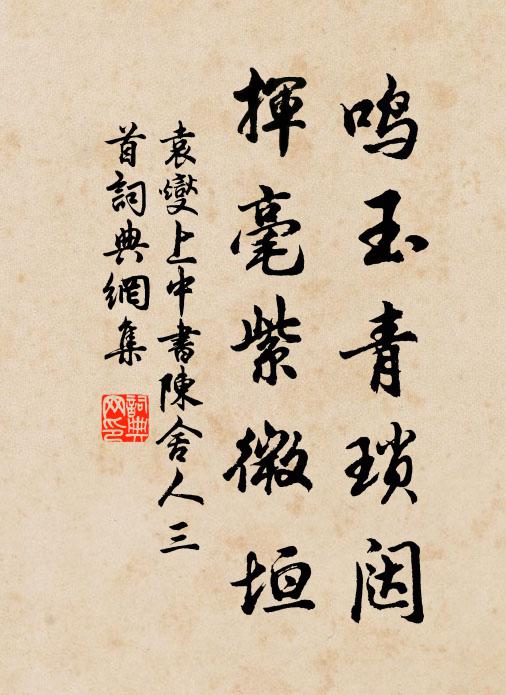 鸣玉青琐闼
揮毫紫微垣
袁燮上中書陳舍人三
首詞典網集
詞典网印